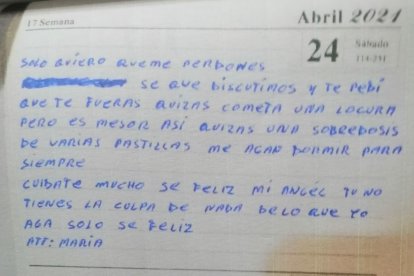 17 Semana
Abril 2021
24 Sábado
114-251
SOLO QUIERO QUEME PERDONES
SE QUE DISCUTIMOS Y TE PEDI
QUE TE FUERAS QUIZAS COMETA UNA LOCURA
PERO ES MEJOR ASÍ QUIZAS UNA SOBREDOSIS
DE VARIAS PASTILLAS ME AGAN DORMIR PARA
SIEMPRE
CUIDATE MUCHO SE FELIZ MI ANGÉL TU NO
TIENES LA CULPA DE NADA DE LO QUE YO
AGA SOLO SE FELIZ
ATT: MARIA